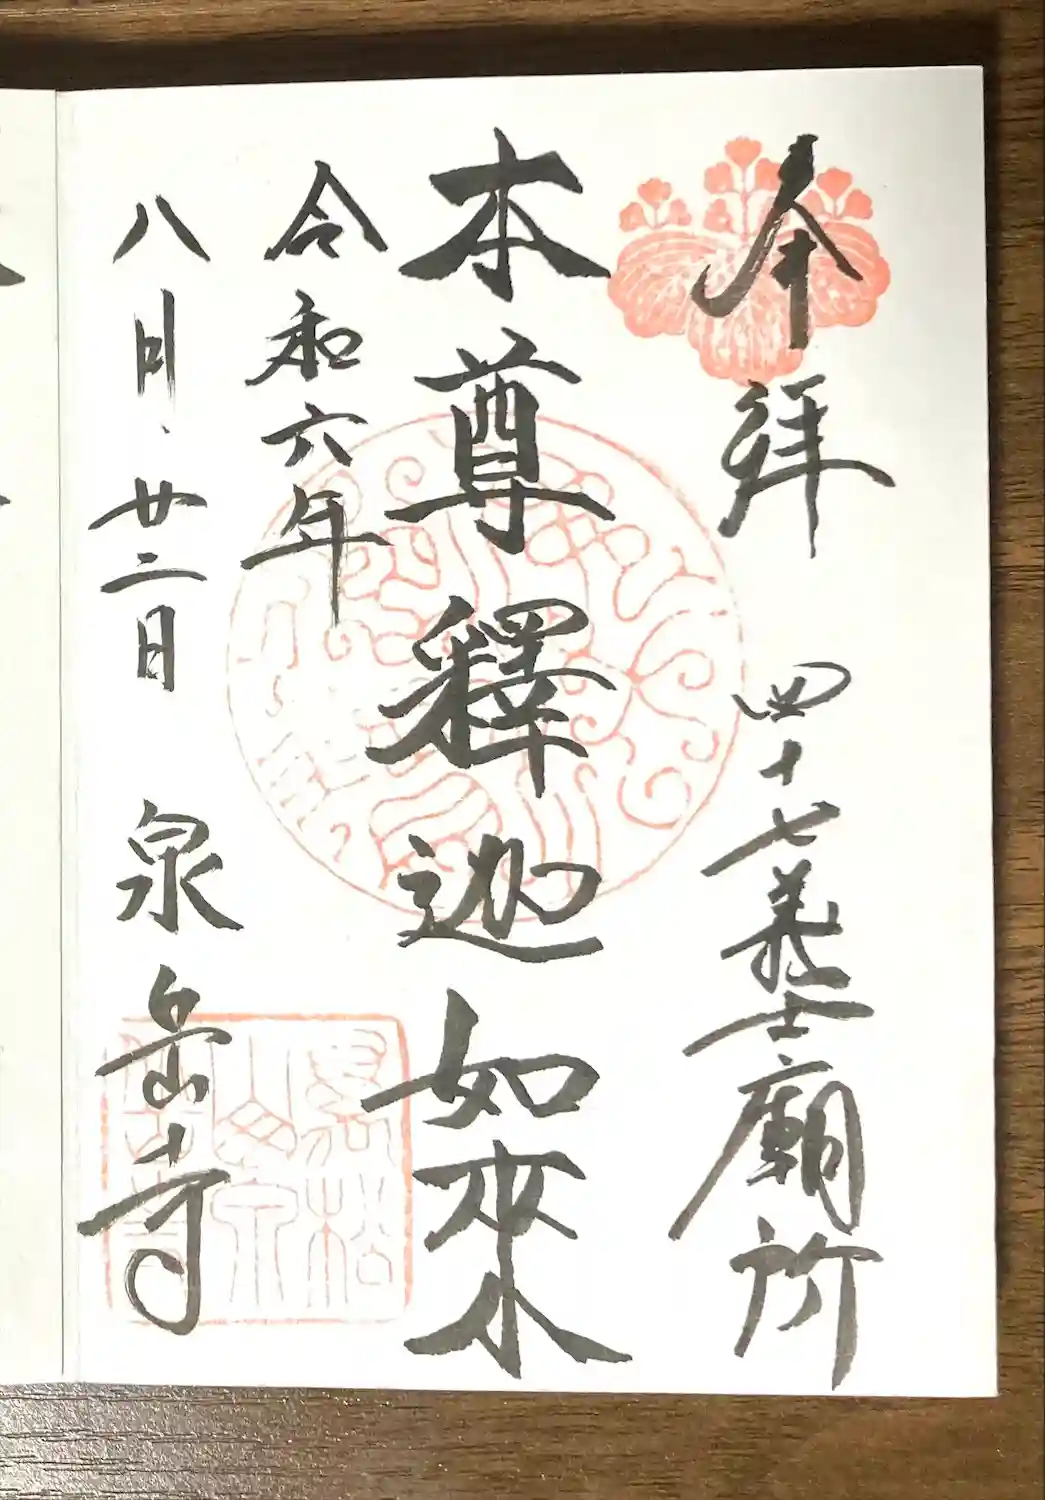 奉拜 四十七義士廟所
本尊釋迦如來
令和六年
八月廿二日 泉岳寺